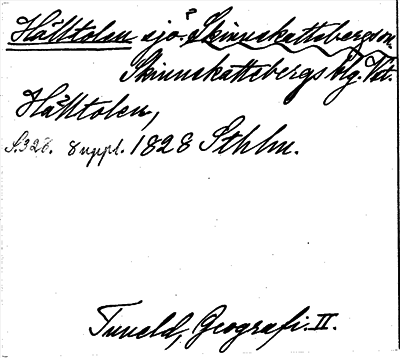 Hålltolen sjö. Skinnskattebergs sn.
Skinnskattebergs blg. Vst.
Hålltolen,
S. 328. 8 uppl. 1828 Sthlm.
Tuneld, Geografi. II.